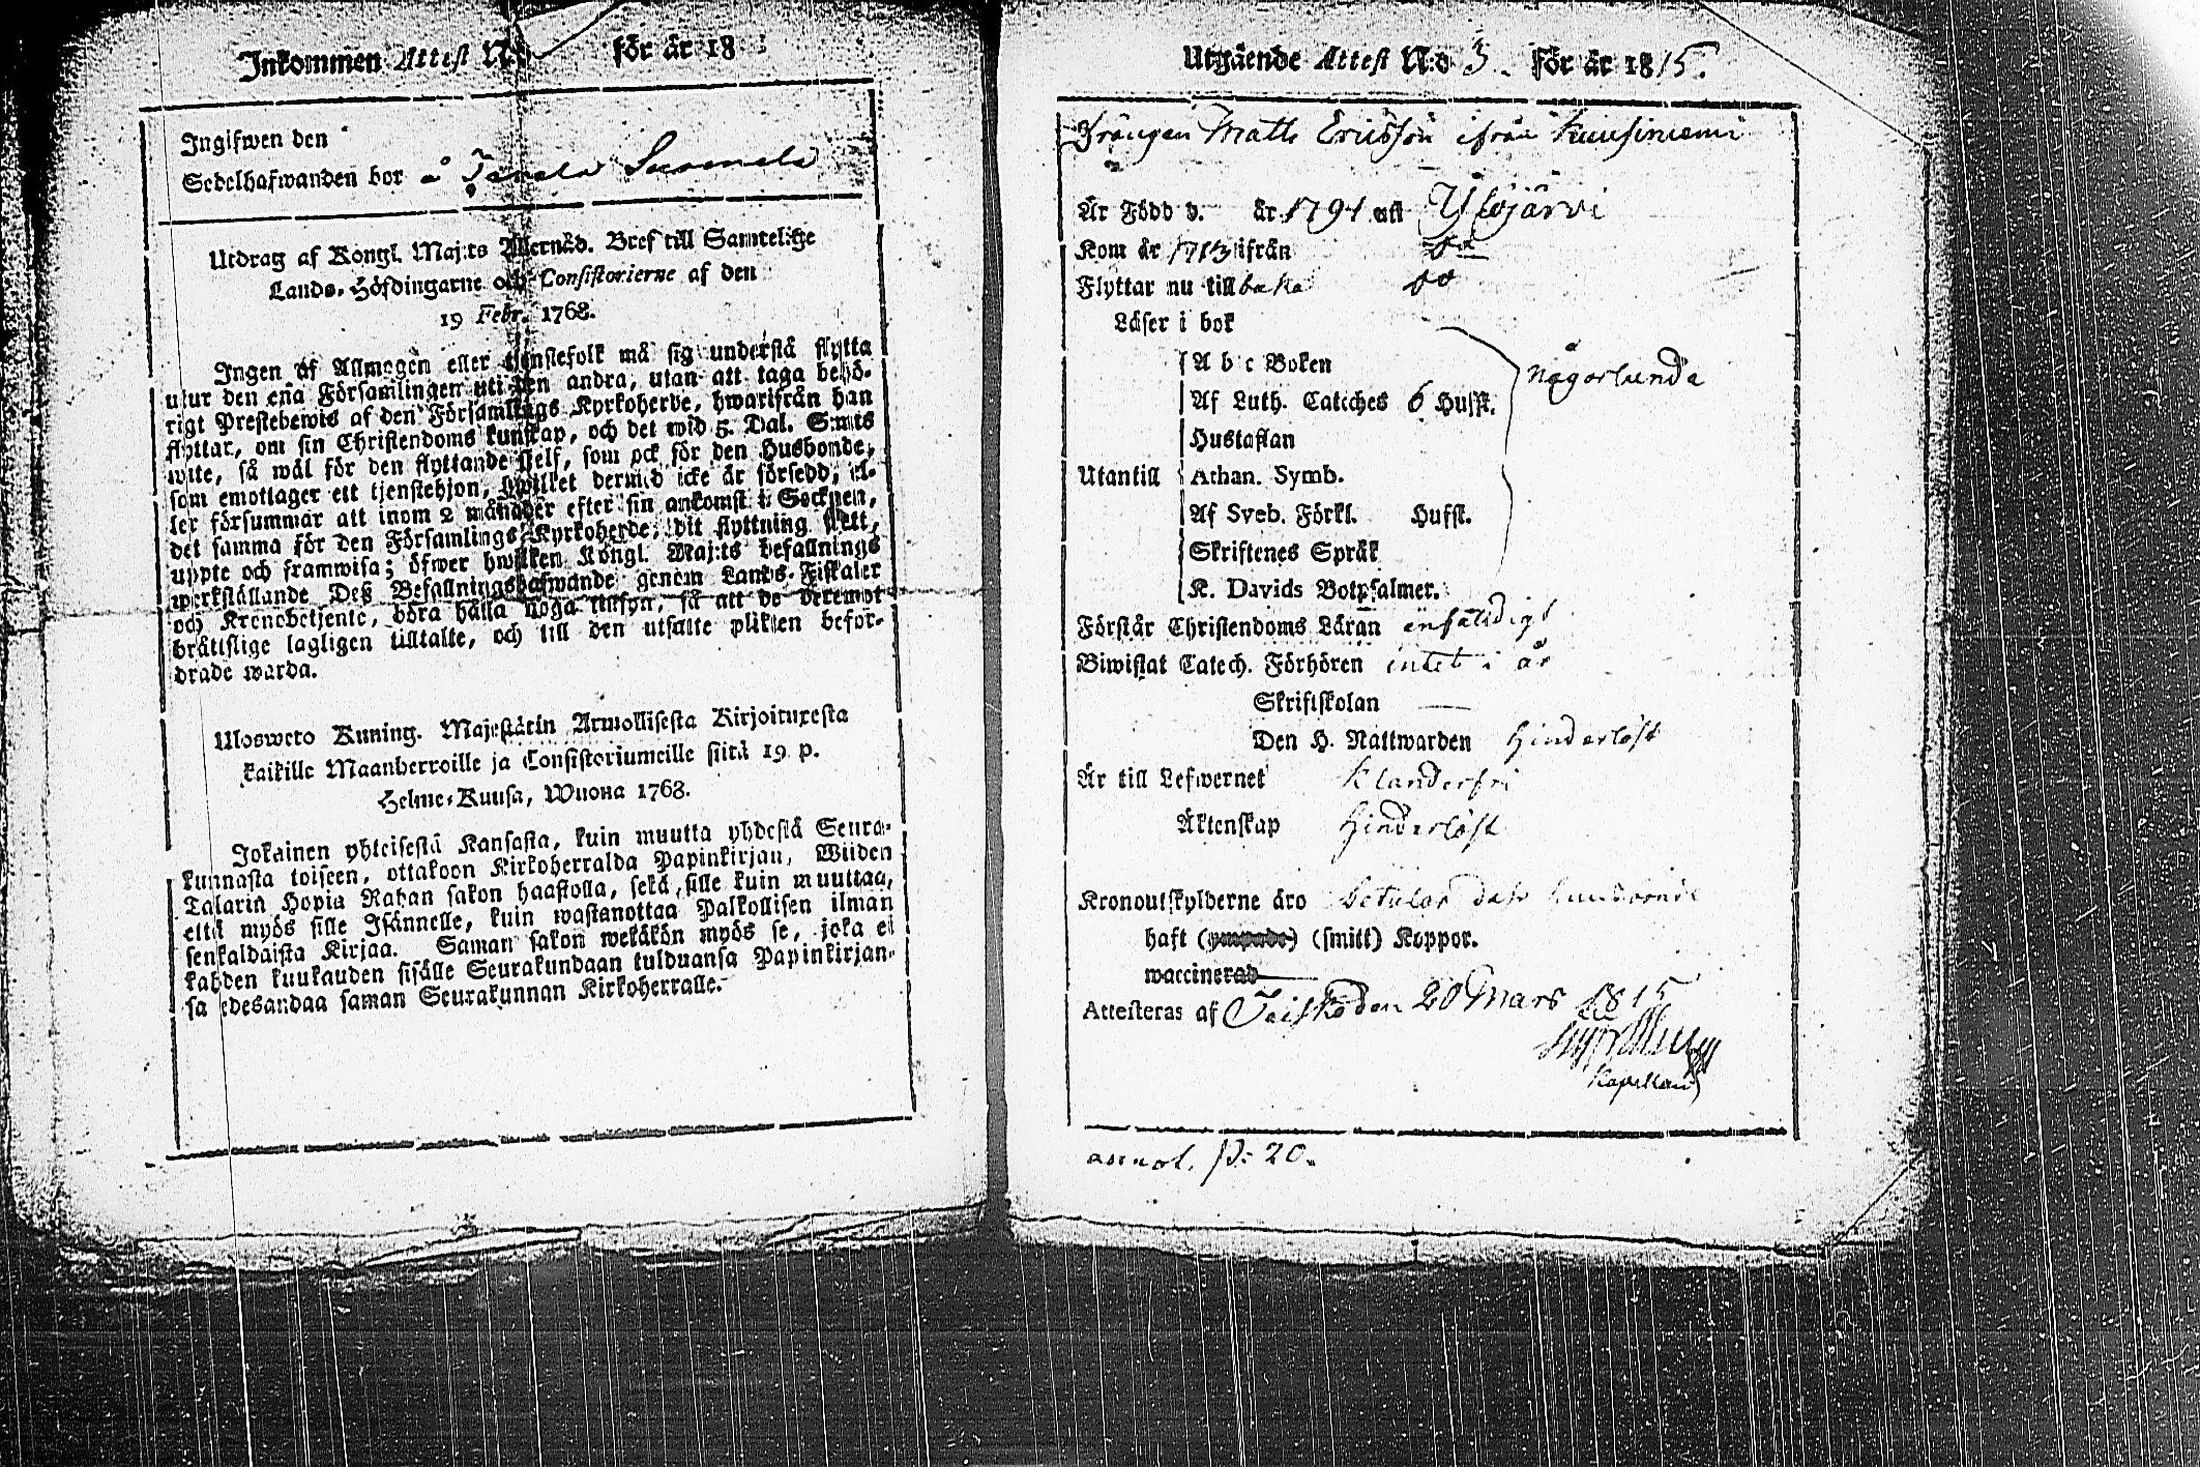 Inkommen Attest N:o för år 18
Ingifwen den
Sedelhafwanden bor å Suomela
Utdrag af Kongl. Maj:ts Allernåd. Bref till Samtelige
Lands-Höfdingarne och Consistorierne af den
19 Febr. 1768.
Ingen af Allmogen eller tjenstefolk må sig understå flytta
utur den ena Församlingen uti den andra, utan att taga behö-
rigt Prestebewis af den Församlings Kyrkoherde, hwarifrån han
flyttar, om sin Christendoms kunskap, och det wid 5. Dal. S:mts
wite, så wäl för den flyttande sjelf, som ock för den Husbonde,
som emottager ett tjenstehjon, hwilket dermed icke är försedd, el-
ler försummar att inom 2 månader efter sin ankomst i Socknen,
det samma för den Församlings Kyrkoherde, dit flyttning skett,
uppte och framwisa; öfwer hwilken Kongl. Maj:ts befallnings
werkställande Deß Befallningshafwande genem Lands-Fiskaler
och Kronobetjente, böra hålla noga tillsyn, så att de deremot
bråttslige lagligen tilltalte, och till den utsatte plikten befor-
drade warda.
Uloswето Kuning. Majestätin Armollisesta Kirjoituxesta
kaikille Maanherroille ja Consistoriumeille siitä 19 p.
Helme-Kuusa, Wuona 1768.
Jokainen yhteisestä Kansasta, kuin muutta yhdestä Seura-
kunnasta toiseen, ottakoon Kirkoherralda Papinkirjan, Wiiden
Talarin Hopia Rahan sakon haastolla, sekä sille kuin muuttaa,
että myös sille Isännelle, kuin wastanottaa Palkollisen ilman
senkaldaista Kirjaa. Saman sakon wekäkön myös se, joka ei
kahden kuukauden sisälle Seurakundaan tulduansa Papinkirjan-
sa edesandaa saman Seurakunnan Kirkoherralle.
Utgående Attest N:o 3. för år 1815.
Drängen Matts Ericsson ifrån Kuusiniemi
Är Född d. år 1791 uti Ylöjärvi
Kom år 1713 ifrån do
Flyttar nu till baka do
Läser i bok
A b c Boken någorlunda
Af Luth. Catéches 6 Hufst.
Hustaflan
Utantill Athan. Symb.
Af Sveb. Förkl. Hufst.
Skriftenes Språk
K. Davids Botpsalmer.
Förstår Christendoms Läran enfaldigt
Biwistat Catech. Förhören intet i år
Skriftskolan —
Den H. Nattwarden Hinderlöst
Är till Lefwernet Klanderfri
Äktenskap Hinderlöst
Kronoutskylderne äro betalar
haft (ympade) (smitt) Koppor.
waccinerad
Attesteras af Teisko den 20 Mars 1815
Kapellan
annot. p: 20.